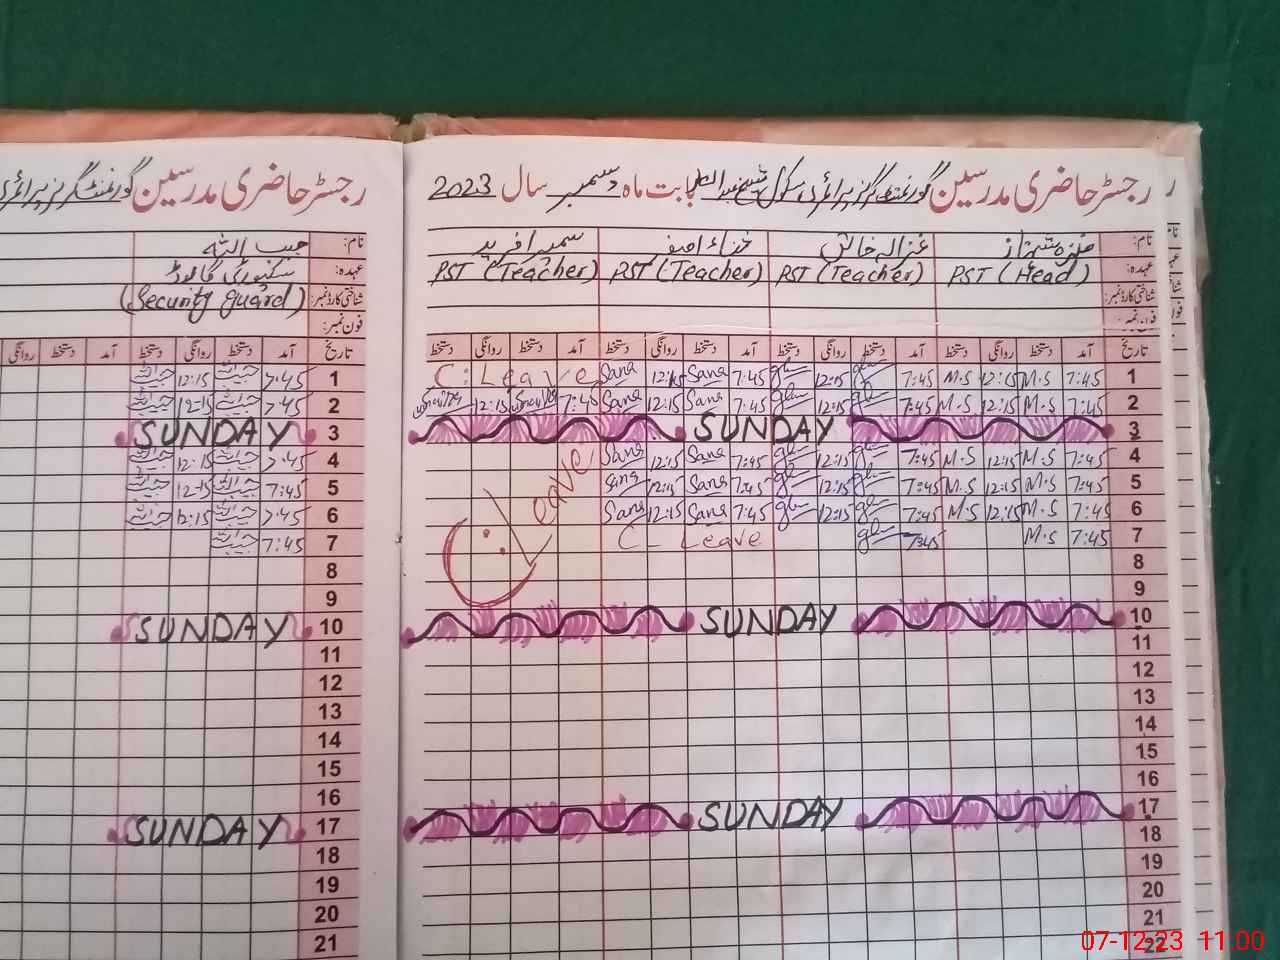 رجسٹر حاضری مدرسین گورنمنٹ گرلز پرائمری سکول بابت ماہ دسمبر سال 2023
نام: غزالہ خالق ثناء آصف سمیرا فرید
عہدہ: PST (Head) PST (Teacher) PST (Teacher) PST (Teacher)
شناختی کارڈ نمبر:
فون نمبر:
تاریخ آمد دستخط روانگی دستخط آمد دستخط روانگی دستخط آمد دستخط روانگی دستخط آمد دستخط روانگی دستخط
1 7:45 M.S 12:15 M.S 7:45 12:15 7:45 Sana 12:15 Sana C: Leave
2 7:45 M.S 12:15 M.S 7:45 12:15 7:45 Sana 12:15 Sana 7:45 12:15
3 SUNDAY
4 7:45 M.S 12:15 M.S 7:45 12:15 7:45 Sana 12:15 Sana C: Leave
5 7:45 M.S 12:15 M.S 7:45 12:15 7:45 Sana 12:15 Sana
6 7:45 M.S 12:15 M.S 7:45 12:15 7:45 Sana 12:15 Sana
7 7:45 M.S 7:45 C- Leave
8
9
10 SUNDAY
11
12
13
14
15
16
17 SUNDAY
18
19
20
21
22
رجسٹر حاضری مدرسین گورنمنٹ گرلز پرائمری
نام: حبیب اللہ
عہدہ: سکیورٹی گارڈ
شناختی کارڈ نمبر: (Security guard)
فون نمبر:
تاریخ آمد دستخط روانگی دستخط آمد دستخط روانگی
1 7:45 حبیب اللہ 12:15 حبیب اللہ
2 7:45 حبیب اللہ 12:15 حبیب اللہ
3 SUNDAY
4 7:45 حبیب اللہ 12:15 حبیب اللہ
5 7:45 حبیب اللہ 12:15 حبیب اللہ
6 7:45 حبیب اللہ 12:15 حبیب اللہ
7 7:45 حبیب اللہ
8
9
10 SUNDAY
11
12
13
14
15
16
17 SUNDAY
18
19
20
21
07-12-23 11:00